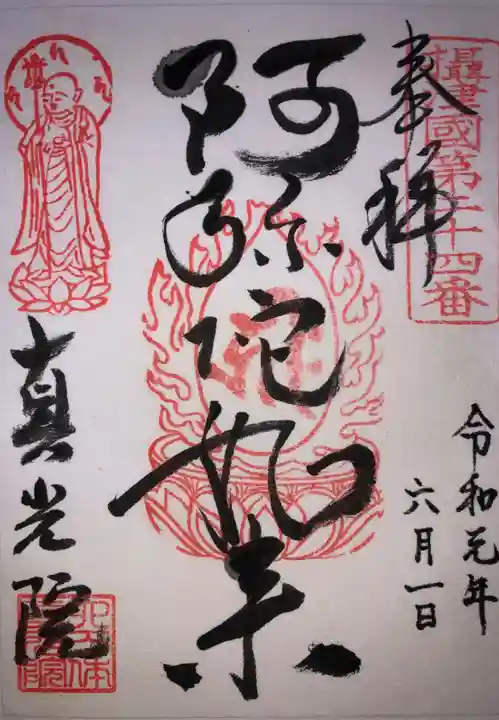 攝津國第二十四番
奉拝
令和元年
六月一日
阿弥陀如来
真光院